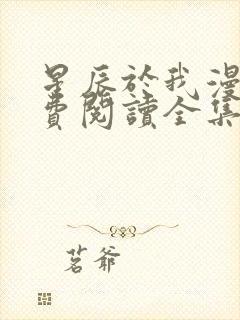 星辰於我漫
費閱讀全集
茗爺